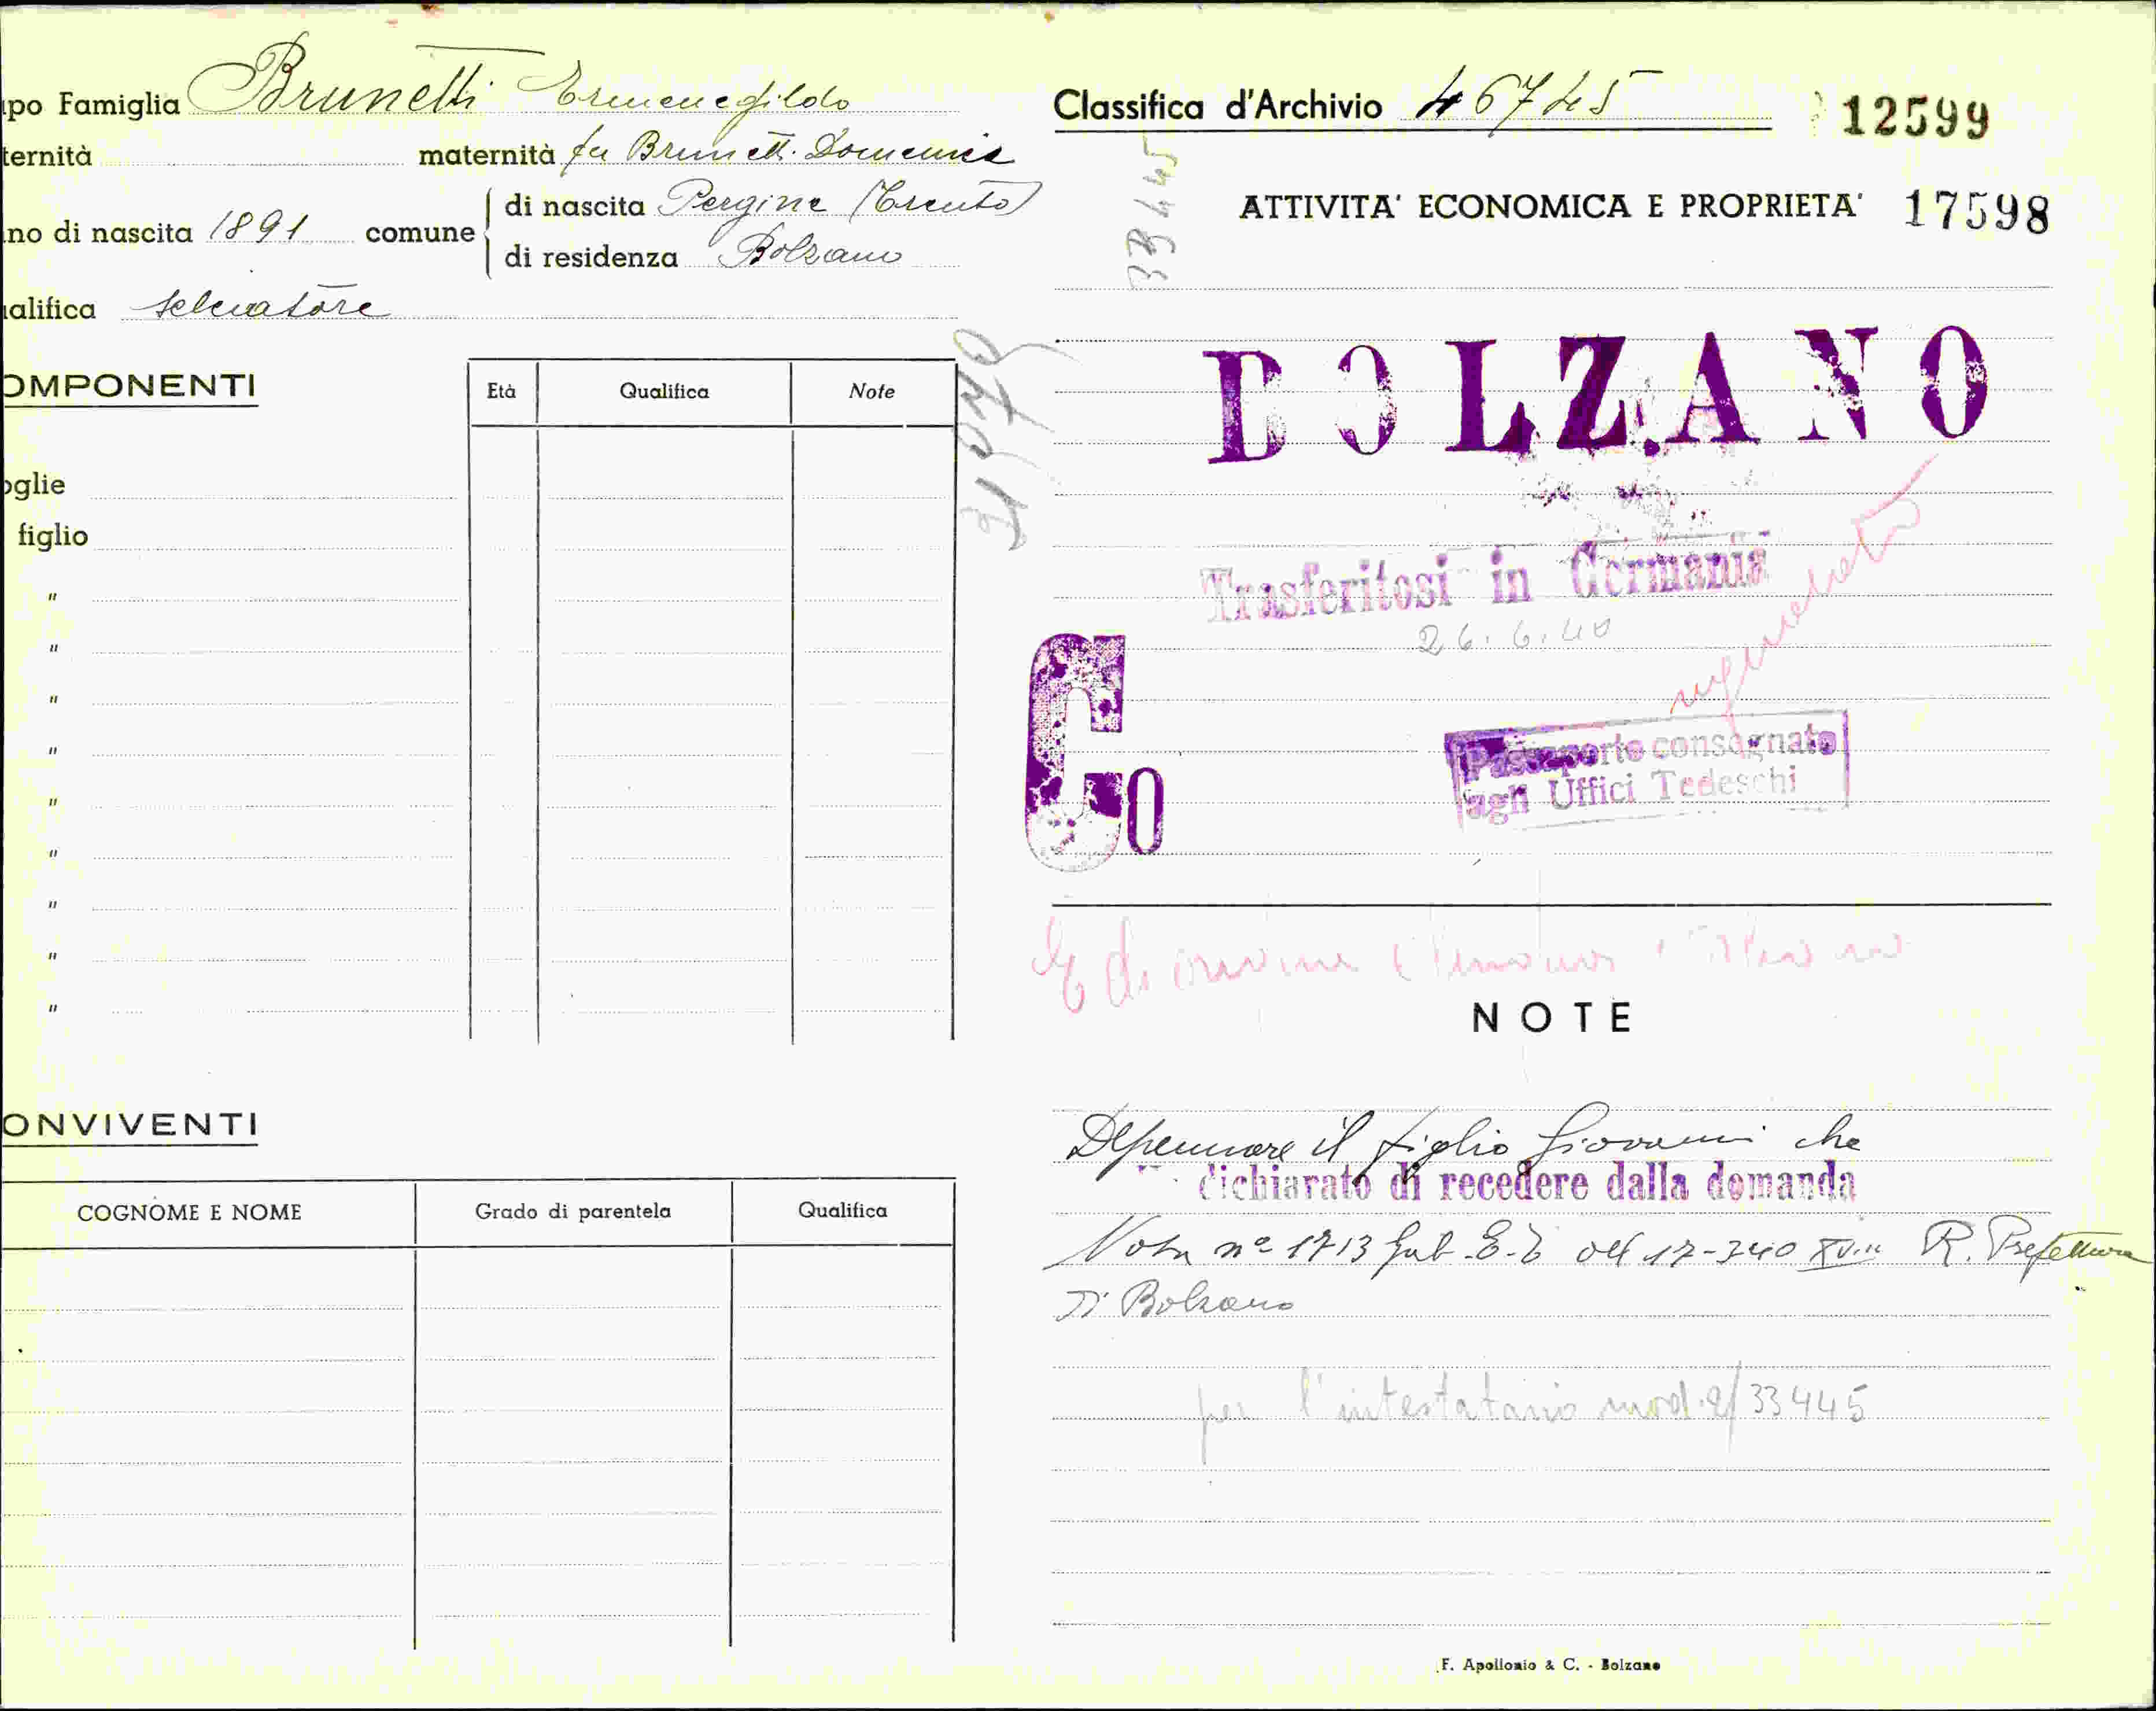 po Famiglia Brunetti Ermenegildo
ternità maternità fu Brunetti Domenica
no di nascita 1891 comune
di nascita Pergine (Trento)
di residenza Bolzano
alifica selciatore
OMPONENTI
Età Qualifica Note
oglie
figlio
"
"
"
"
"
"
"
"
"
ONVIVENTI
COGNOME E NOME Grado di parentela Qualifica
Classifica d'Archivio 46745 12599
33445
ATTIVITA' ECONOMICA E PROPRIETA' 17598
BOLZANO
Trasferitosi in Germania
26.6.40
Co
Passaporto consegnato
agli Uffici Tedeschi
E di
NOTE
Depennare il figlio Giovanni che
dichiarato di recedere dalla domanda
Nota nº 1713 Gab. del R. Prefettura
di Bolzano
per l'intestatario mod. 2/33445
F. Apollonio & C. - Bolzano